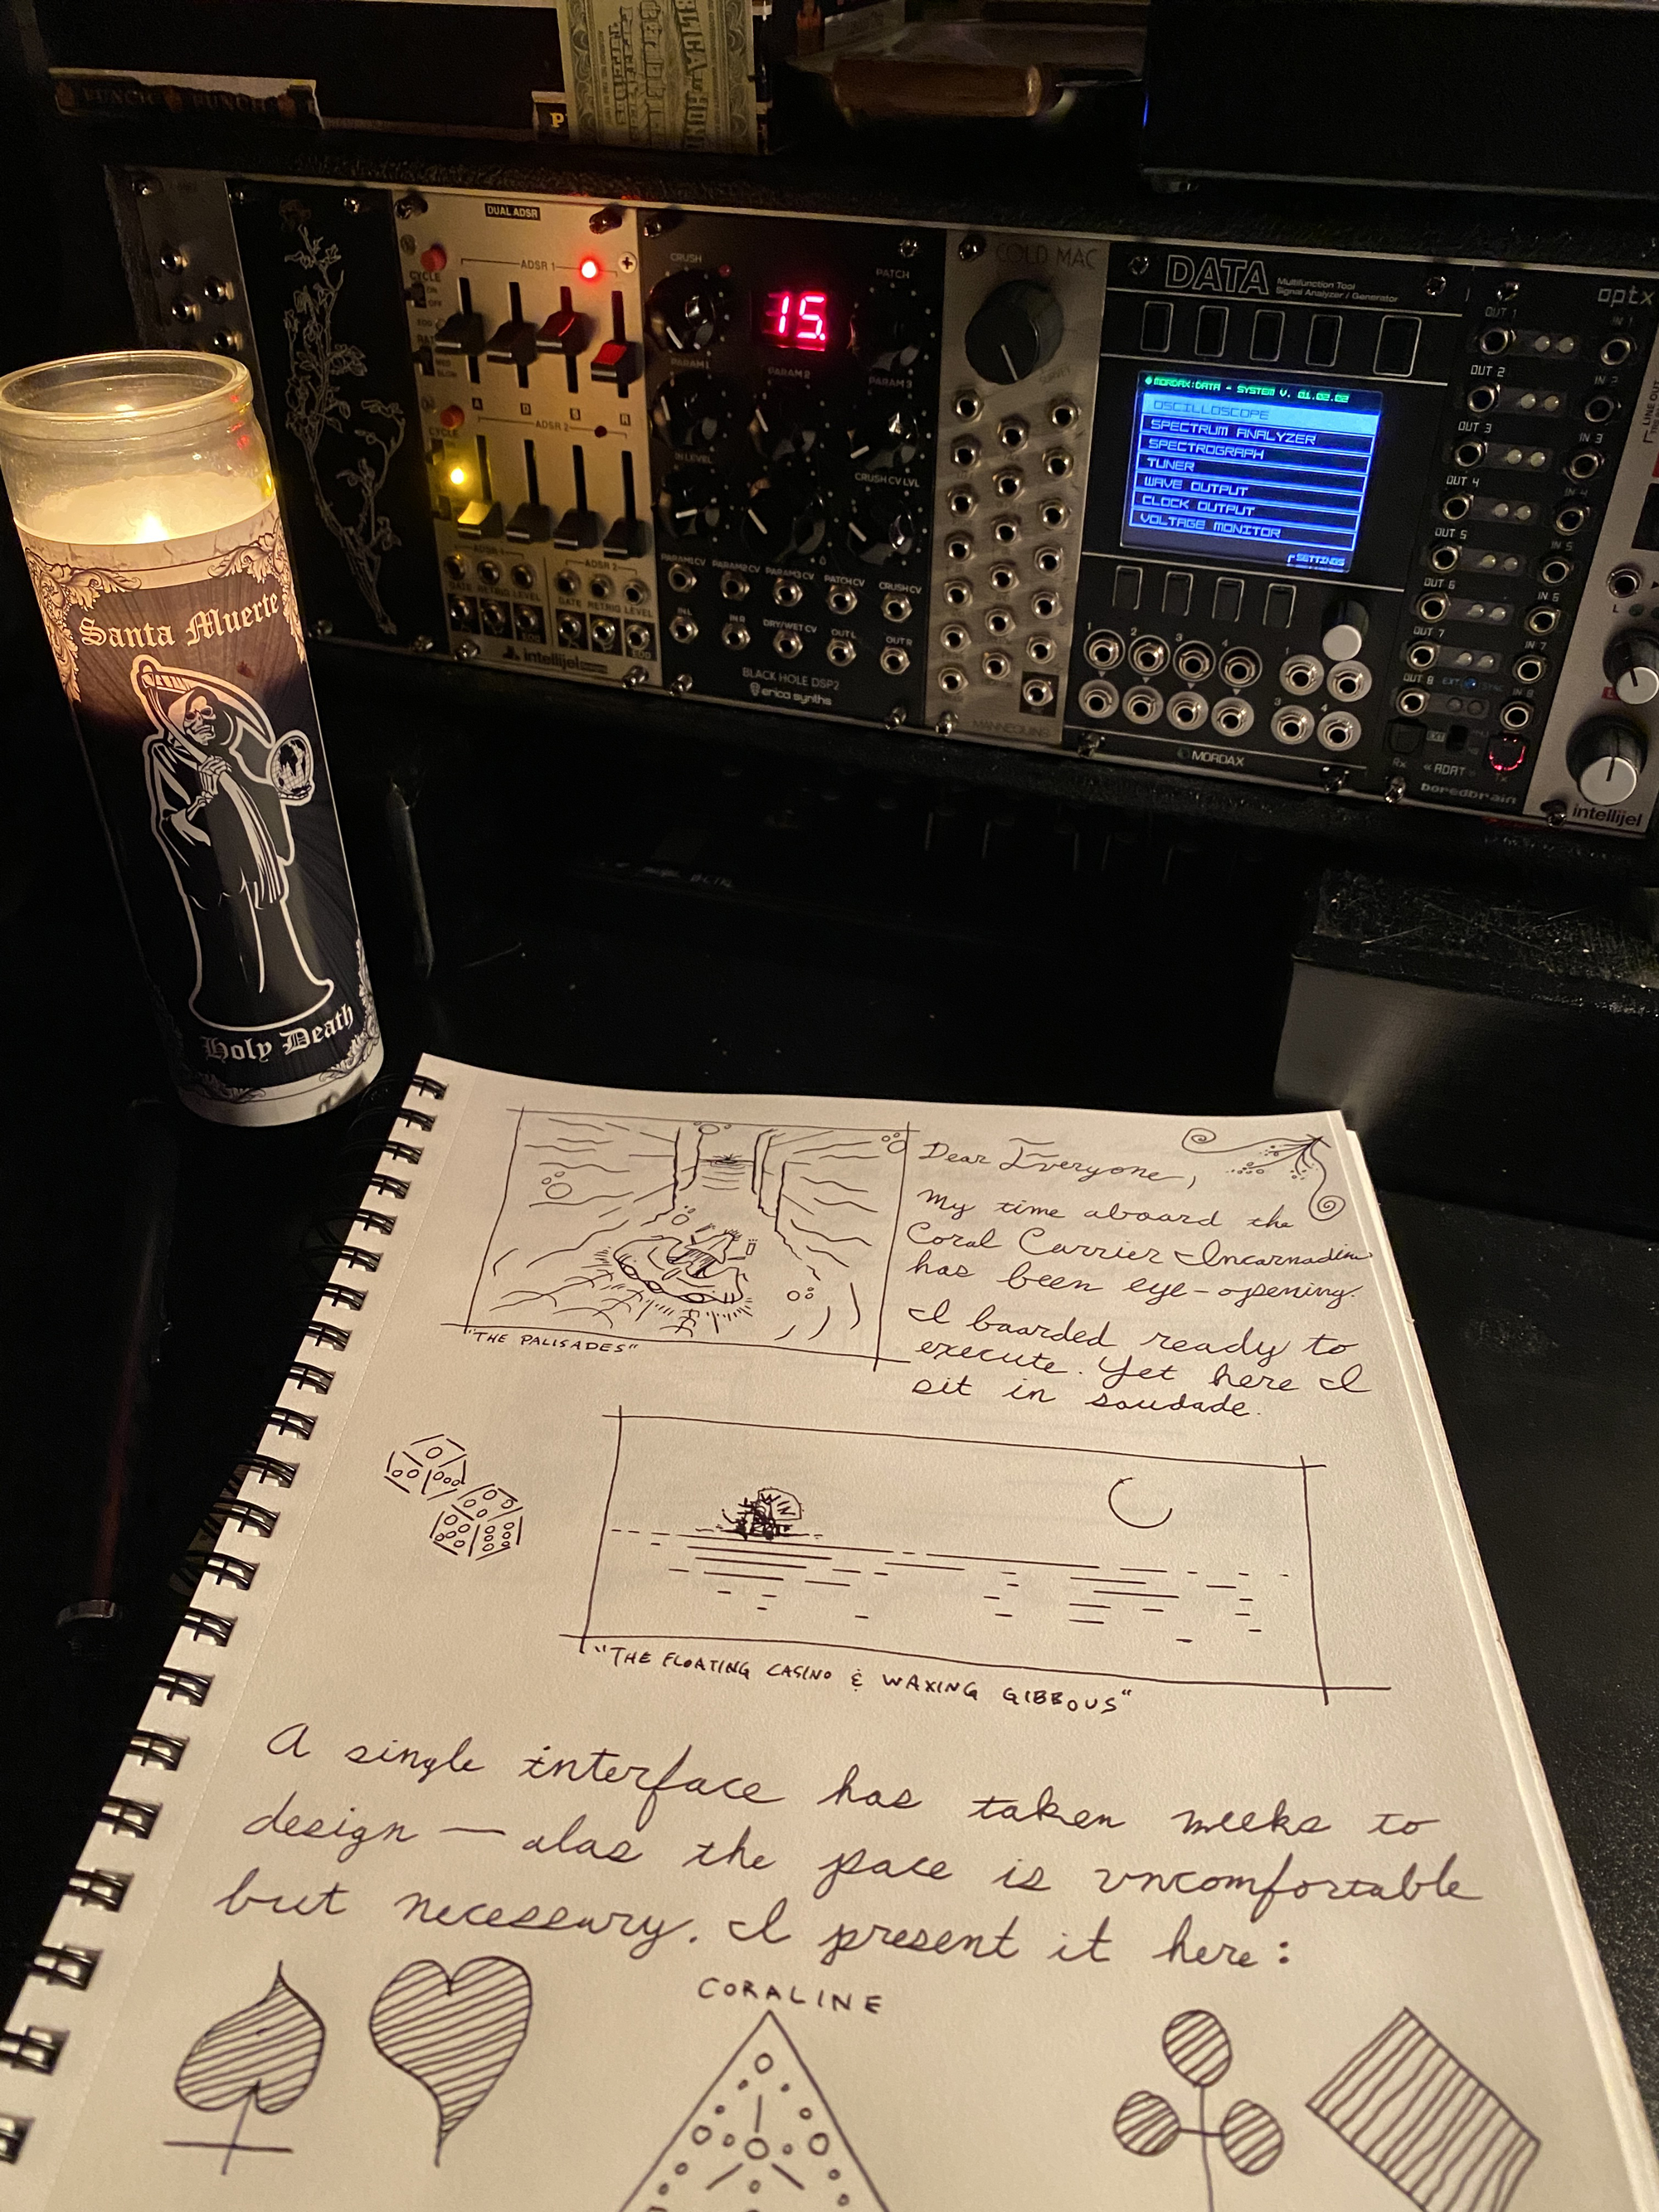 PUNCH PUNCH
DUAL ADSR
ADSR 1
CYCLE
ON
OFF
A D S R
ADSR 2
CYCLE
ADSR 1
ADSR 2
GATE RETRIG LEVEL
GATE RETRIG LEVEL
EOD
EOD
intellijel
CRUSH
PATCH
15.
PARAM 1
PARAM 2
PARAM 3
IN LEVEL
CRUSH CV LVL
PARAM1 CV PARAM2 CV PARAM3 CV PATCH CV CRUSH CV
IN L IN R DRY/WET CV OUT L OUT R
BLACK HOLE DSP2
erica synths
COLD MAC
SURVEY
MANNEQUINS
DATA
Multifunction Tool
Signal Analyzer / Generator
MORDAX:DATA - SYSTEM V. 01.02.02
OSCILLOSCOPE
SPECTRUM ANALYZER
SPECTROGRAPH
TUNER
WAVE OUTPUT
CLOCK OUTPUT
VOLTAGE MONITOR
SETTINGS
1 2 3 4
MORDAX
optx
OUT 1 IN 1
OUT 2 IN 2
OUT 3 IN 3
OUT 4 IN 4
OUT 5 IN 5
OUT 6 IN 6
OUT 7 IN 7
OUT 8 IN 8
Rx «ADAT» Tx
boredbrain
LINE OUT
L
intellijel
Santa Muerte
Holy Death
"THE PALISADES"
Dear Everyone,
My time aboard the
Coral Carrier Incarnadine
has been eye-opening.
I boarded ready to
execute. Yet here I
sit in saudade.
"THE FLOATING CASINO & WAXING GIBBOUS"
A single interface has taken weeks to
design — alas the pace is uncomfortable
but necessary. I present it here:
CORALINE